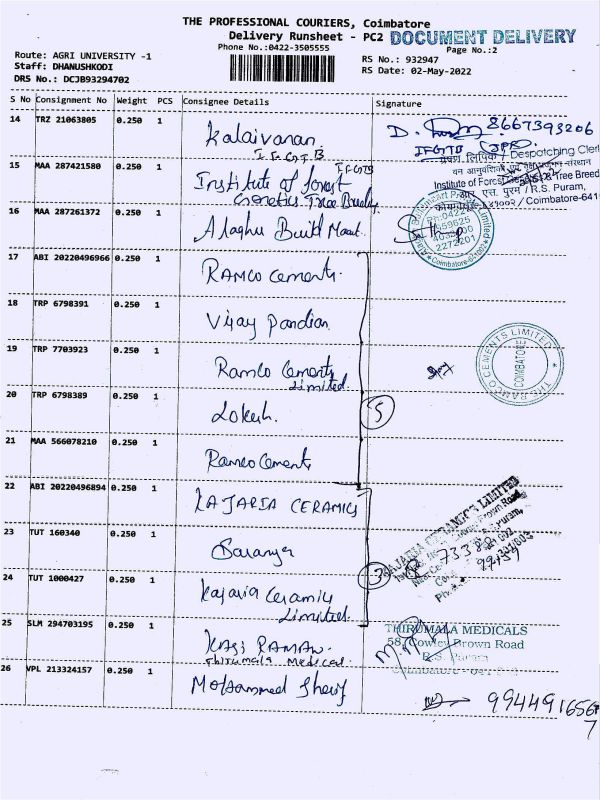 THE PROFESSIONAL COURIERS, Coimbatore
Delivery Runsheet - PC2 DOCUMENT DELIVERY
Phone No.:0422-3505555
Page No.:2
Route: AGRI UNIVERSITY -1
RS No.: 932947
Staff: DHANUSHKODI
RS Date: 02-May-2022
DRS No.: DCJB93294702
S No Consignment No Weight PCS Consignee Details Signature
14 TRZ 21063805 0.250 1 Kalaivanan D. 8667393206
I F G T B IFGTB
प्रेषण लिपिक / Despatching Clerk
15 MAA 287421580 0.250 1 Institute of forest IFGTB
Genetics Tree Breeding
Institute of Forest Genetics & Tree Breed
एस. पुरम / R.S. Puram,
कोयम्बत्तूर-६४१००२ / Coimbatore-641
16 MAA 287261372 0.250 1 Alaghu Build Maat.
2272201
Coimbatore
17 ABI 20220496966 0.250 1 RAMCO cements.
18 TRP 6798391 0.250 1 Vijay Pandian
19 TRP 7703923 0.250 1 Ramco Cements
Limited
THE RAMCO CEMENTS LIMITED
COIMBATORE
20 TRP 6798389 0.250 1 Lokesh. 5
21 MAA 566078210 0.250 1 Ramco Cements
22 ABI 20220496894 0.250 1 KAJARIA CERAMICS
KAJARIA CERAMICS LIMITED
23 TUT 160340 0.250 1 Saranya
24 TUT 1000427 0.250 1 Kajaria Ceramics 3
Limited.
25 SLM 294703195 0.250 1 KASI RAMAN.
Thirumala Medical
THIRUMALA MEDICALS
58, Cowley Brown Road
R.S. Puram
26 VPL 213324157 0.250 1 Mohammed Sherif
9944916567